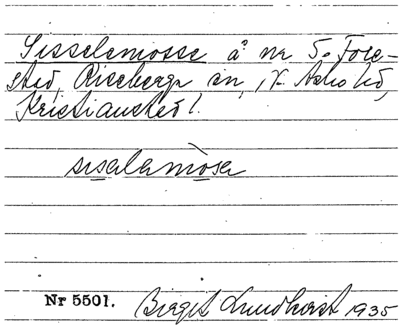 Sisselamosse å nr 5. Fore-
stad, Riseberga sn, N. Åsbo hd,
Kristianstad l.
sisəlamòsa
Nr 5501. Birgit Lundkvist 1935